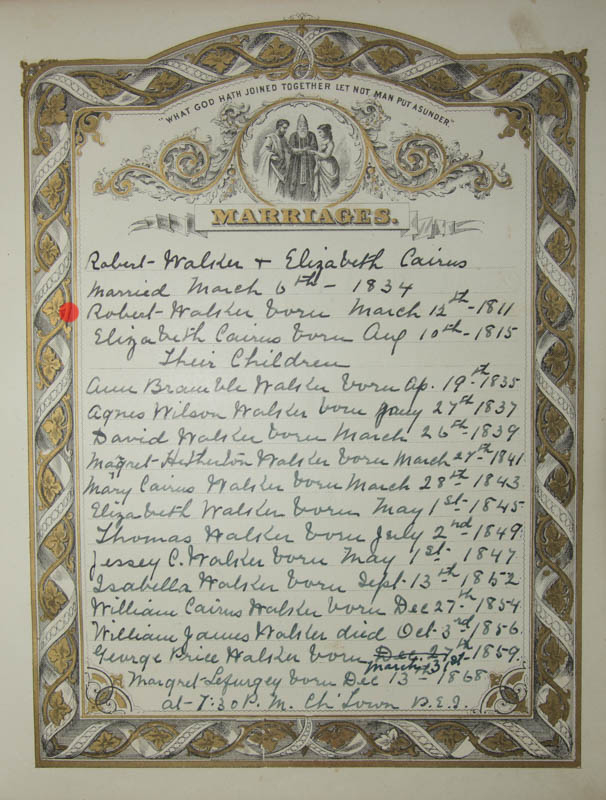 "WHAT GOD HATH JOINED TOGETHER LET NOT MAN PUT ASUNDER."
MARRIAGES.
Robert Walker + Elizabeth Cairns
Married March 6th - 1834
Robert Walker born March 12th - 1811
Elizabeth Cairns born Aug 10th - 1815
Their Children
Ann Bramble Walker born Ap. 19th 1835
Agnes Wilson Walker born Jany 27th 1837
David Walker born March 26th - 1839
Magret Hetherton Walker born March th 1841
Mary Cairns Walker born March 28th 1843
Elizabeth Walker born May 1st - 1845
Thomas Walker born July 2nd - 1849
Jessey C. Walker born May 1st - 1847
Isabella Walker born Sept 13th 1852
William Cairns Walker born Dec 27th - 1854
William James Walker died Oct 3rd 1856
George Price Walker born Dec. 27th 1859
March 31st
Margret Lefurgey born Dec 13th 1868
at 7.30 P. M. Ch'Town P.E.I.